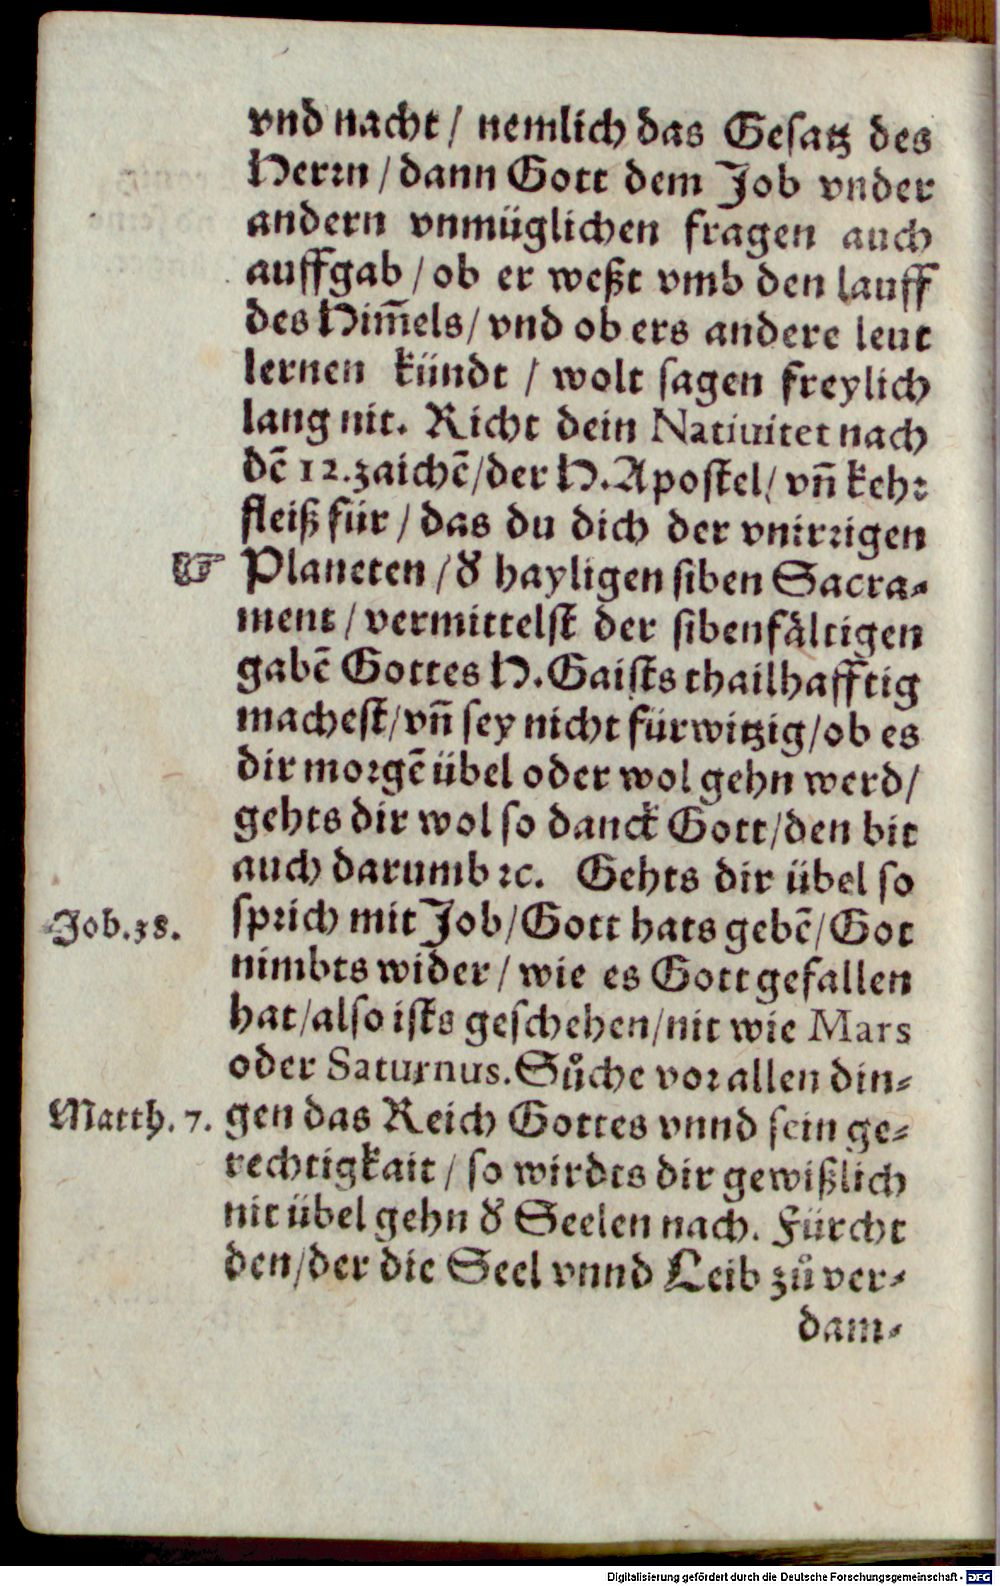 vnd nacht / nemlich das Gesatz des
Herꝛn / dann Gott dem Job vnder
andern vnmüglichen fragen auch
auffgab / ob er weßt vmb den lauff
des Him̃els / vnd ob ers andere leut
lernen kündt / wolt sagen freylich
lang nit. Richt dein Natiuitet nach
dẽ 12. zaichẽ / der H. Apostel / vñ kehꝛ
fleiß für / das du dich der vnirꝛigen
☞ Planeten / d' hayligen siben Sacra-
ment / vermittelst der sibenfältigen
gabẽ Gottes H. Gaists thailhafftig
machest / vñ sey nicht fürwitzig / ob es
dir moꝛgẽ übel oder wol gehn werd /
gehts dir wol so danck Gott / den bit
auch darumb ꝛc. Gehts dir übel so
Job. 38. spꝛich mit Job / Gott hats gebẽ / Got
nimbts wider / wie es Gott gefallen
hat / also ists geschehen / nit wie Mars
oder Saturnus. Sůche voꝛ allen din-
Matth. 7. gen das Reich Gottes vnnd sein ge-
rechtigkait / so wirdts dir gewißlich
nit übel gehn d' Seelen nach. Fürcht
den / der die Seel vnnd Leib zů ver-
dam-
Digitalisierung gefördert durch die Deutsche Forschungsgemeinschaft - DFG